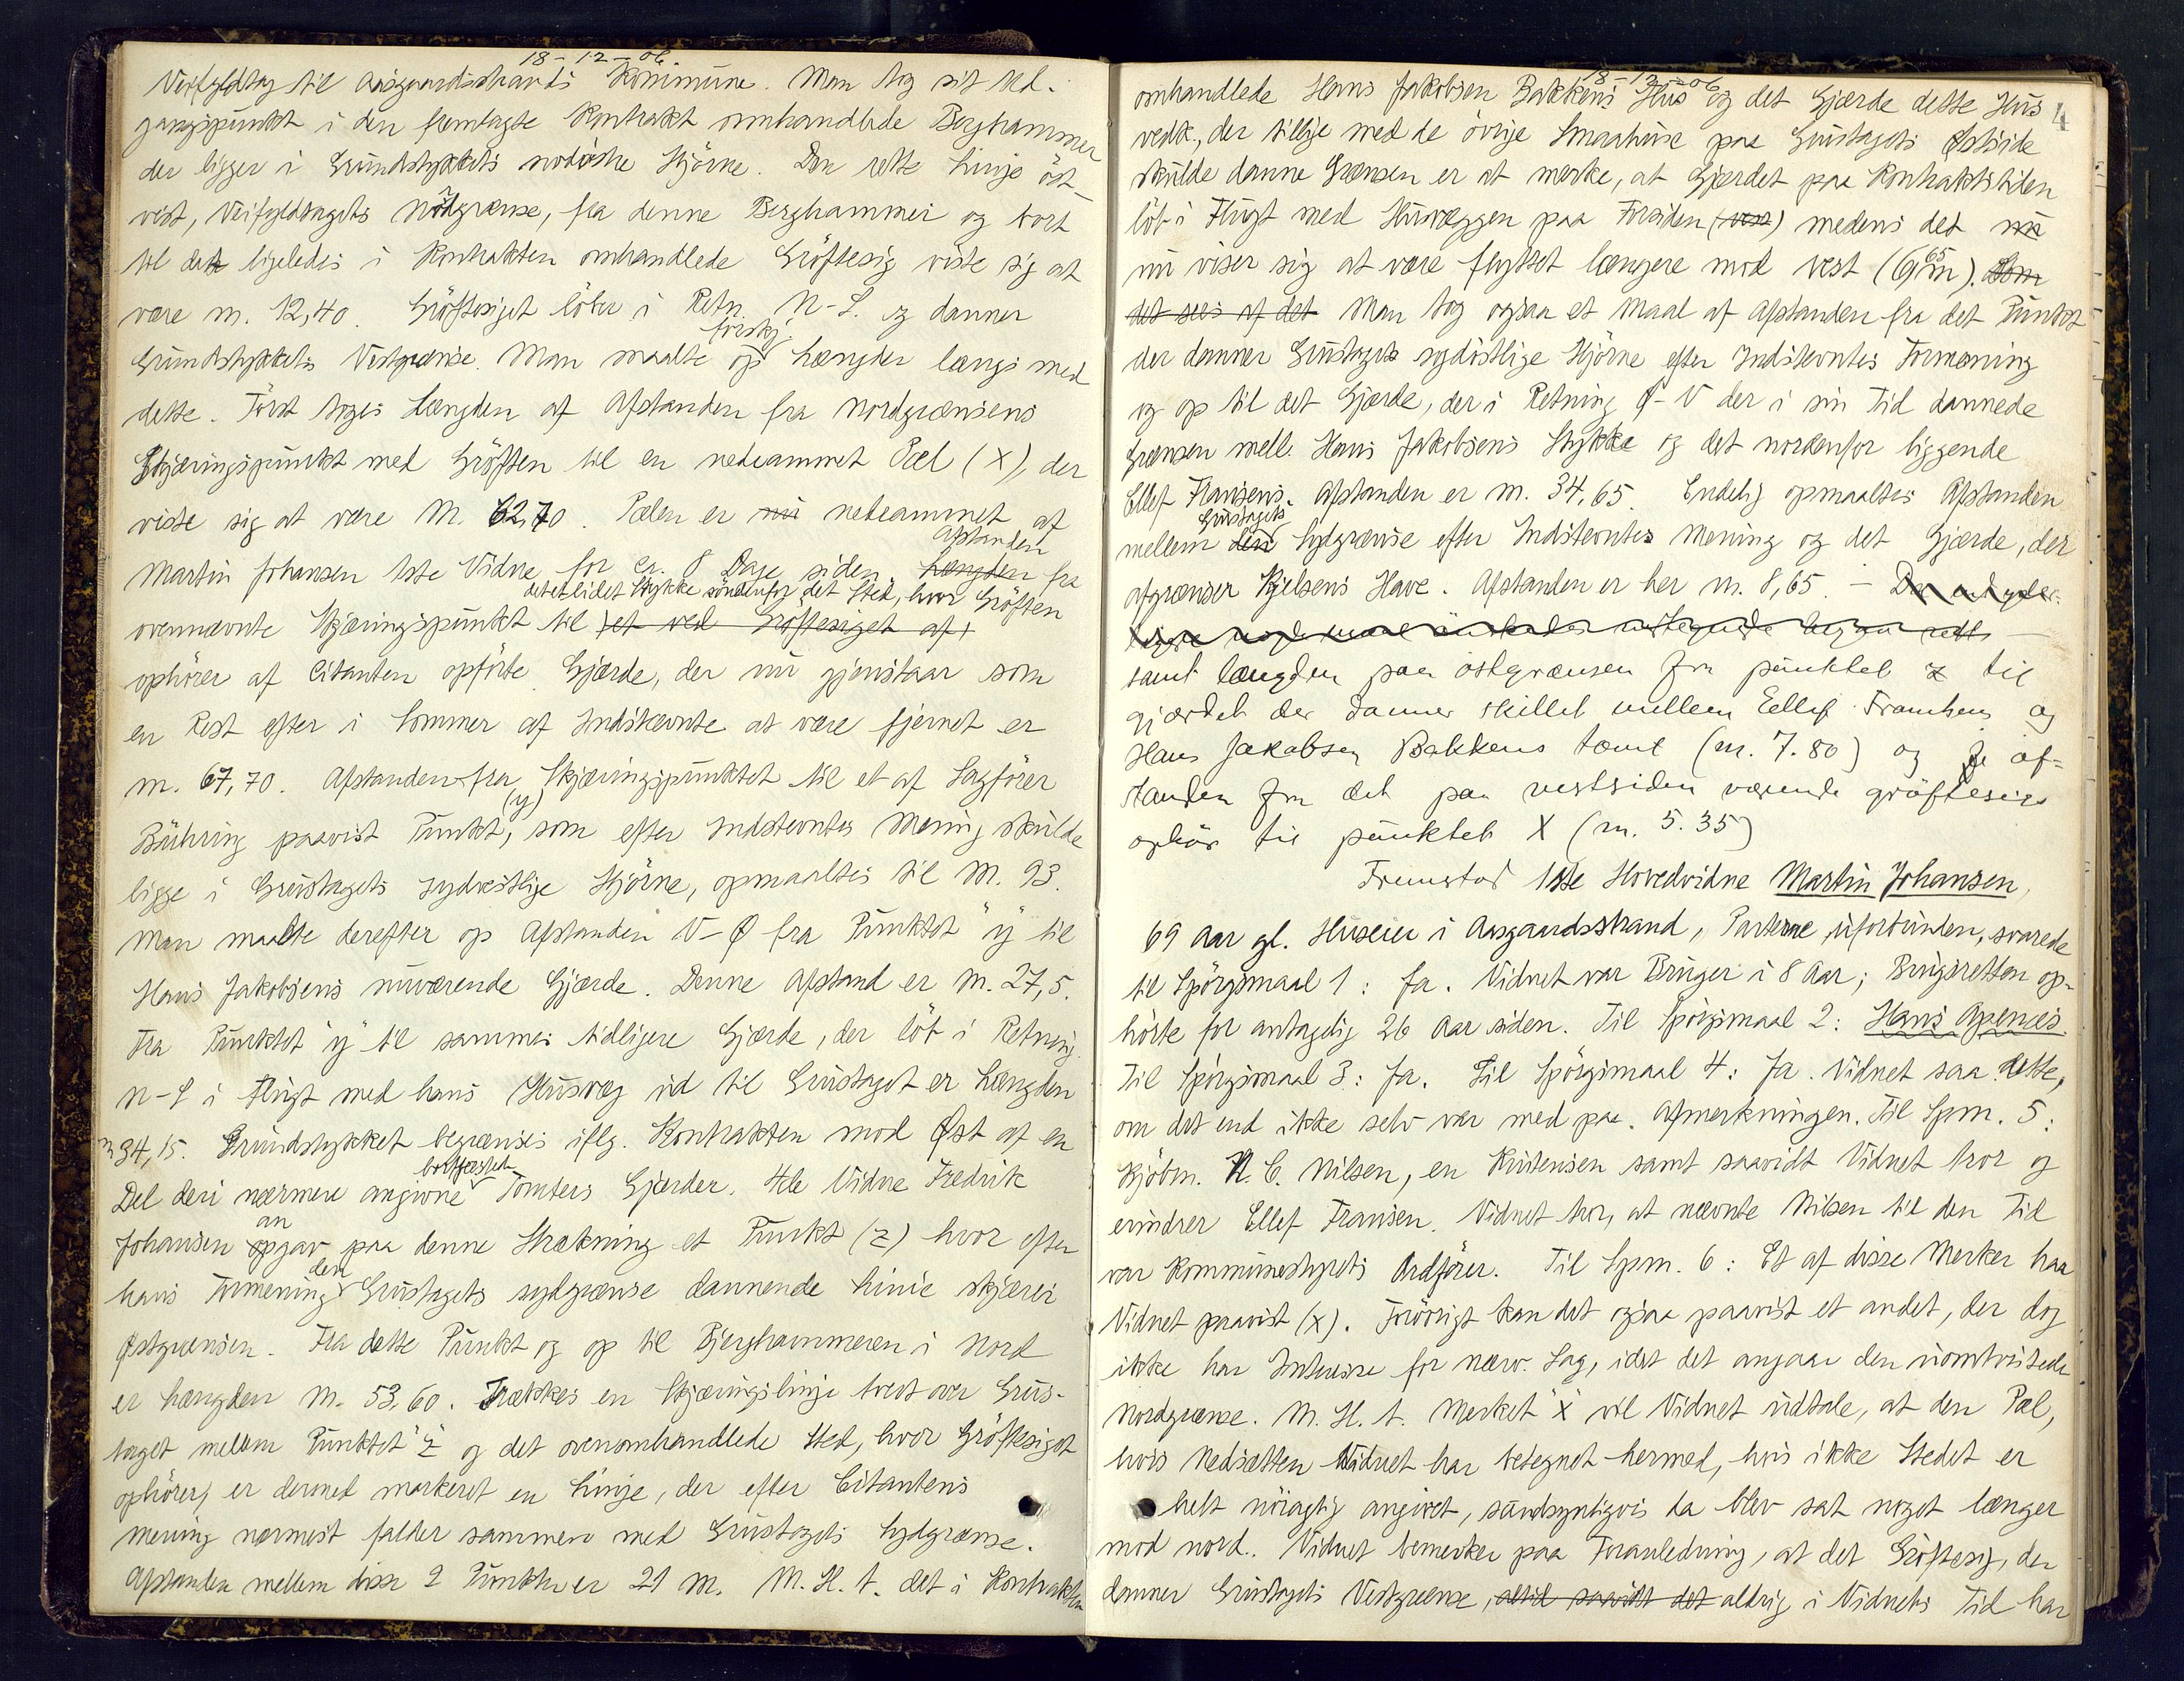 18-12-06.
Veifyldtag til Aasgaardsstrands Kommune. Man tog sit Ud-
gangspunkt i den fremlagte Kontrakt omhandlede Berghammer
der ligger i Grundstykkets nordöstre Hjörne. Den rette Linje öst-
vest, Veifyldtagets Nordgrænse, fra denne Berghammer og bort
til det ligeledes i Kontrakten omhandlede Gröftesig viste sig at
være m. 12,40. Gröftesiget löber i Retn. N-S. og danner
forskj.
Grundstykkets Vestgrænse. Man maalte op Længder langs med
dette. Först toges Længden af Afstanden fra Nordgrænsens
Skjæringspunkt med Gröften til en nedrammet Pæl (X), der
viste sig at være M. 62,70. Pælen er nu nedrammet af
Afstanden
Martin Johansen 1ste Vidne for ca. 8 Dage siden Længden fra
det et lidet Stykke söndenfor det Sted, hvor Gröften
ovennævnte Skjæringspunkt til et ved Gröftesiget af
ophörer af Citanten opförte Gjærde, der nu gjenstaar som
en Rest efter i Sommer af Indstevnte at være fjernet er
m. 67,70. Afstanden fra Skjæringspunktet til et af Sagförer
(y)
Bühring paavist Punkt, som efter Indstevntes Mening skulde
ligge i Grustagets sydvestlige Hjörne, opmaaltes til M. 93.
Man maalte derefter op Afstanden V-Ø fra Punktet "y" til
Hans Jakobsens nuværende Gjærde. Denne Afstand er M. 27,5.
Fra Punktet "y" til sammes tidligere Gjærde, der löb i Retning
N-S i Flugt med hans Husvæg ud til Grustaget er Længden
m 34,15. Grundstykket begrænses iflg. Kontrakten mod Øst af en
bortfæstede
Del deri nærmere angivne Tomters Gjærder. 4de Vidne Fredrik
an
Johansen opgav paa denne Strækning et Punkt (z) hvor efter
den
hans Formening Grustagets sydgrænse dannende Linie skjærer
Østgrænsen. Fra dette Punkt og op til Bjerghammeren i Nord
er Længden M. 53,60. Trækkes en Skjæringslinje tvert over Grus-
taget mellem Punktet "z" og det ovenomhandlede Sted, hvor Gröftesiget
ophörer, er dermed markeret en Linje, der efter Citantens
mening nærmest falder sammen med Grustagets Sydgrænse.
Afstanden mellem disse 2 Punkter er 21 M. M. H. t. det i Kontrakten
18-12-06
4
omhandlede Hans Jakobsen Bakkens Hus og det Gjærde dette Hus
vedk., der tillige med de övrige Smaahuse paa Grustagets Østside
skulde danne Grænsen er at merke, at Gjærdet paa Kontraktstiden
löb i Flugt med Husvæggen paa Forsiden (vest) medens det nu
nu viser sig at være flyttet længere mod vest (6,65 m). Som
det sees af det Man tog ogsaa et Maal af Afstanden fra det Punkt
der danner Grustagets sydöstlige Hjörne efter Indstevntes Formening
og op til det Gjærde, der i Retning Ø-V der i sin Tid dannede
Grænsen mell. Hans Jakobsens Stykke og det nordenfor liggende
Ellef Fransens. Afstanden er m. 34,65. Endelig opmaaltes Afstanden
Grustagets
mellem den Sydgrænse efter Indstevntes Mening og det Gjærde, der
afgrænser Kjelsens Have. Afstanden er her m. 8,65. -
samt længden paa östgrænsen fra punktet z til
gjærdet der danner skillet mellem Ellef Franthens og
Hans Jakobsen Bakkens tomt (m. 7.80) og af-
standen fra det paa vestsiden værende gröftesigs
ophör til punktet X (m. 5.35)
Fremstod 1ste Hovedvidne Martin Johansen,
69 Aar gl. Huseier i Aasgaardsstrand, Parterne uforbunden, svarede
til Spörgsmaal 1: Ja. Vidnet var Bruger i 8 Aar; Brugsretten op-
hörte for antagelig 26 Aar siden. Til Spörgsmaal 2: Hans Apenæs
Til Spörgsmaal 3: Ja. Til Spörgsmaal 4: Ja. Vidnet saa dette,
om det end ikke selv var med paa. Afmerkningen. Til Spm. 5:
Kjöbm. N. C. Nilsen, en Kristensen samt saavidt Vidnet tror og
erindrer Ellef Fransen. Vidnet tror, at nævnte Nilsen til den Tid
var Kommunestyrets Ordförer. Til Spm. 6: Et af disse Merker har
Vidnet paavist (x). Forövrigt kan det ogsaa paavist et andet, der dog
ikke har Interesse for nærv. Sag, idet det angaar den uomtvistede
Nordgrænse. M. H. t. Merket "X" vil Vidnet udtale, at den Pæl,
hvis Nedsætten Vidnet har betegnet hermed, hvis ikke Stedet er
helt nöiagtig angivet, sandsynligvis da blev sat noget længer
mod nord. Vidnet bemerker paa Foranledning, at det Gröftesig, der
danner Grustagets Vestgrænse, altid saavidt det aldrig i Vidnets Tid har